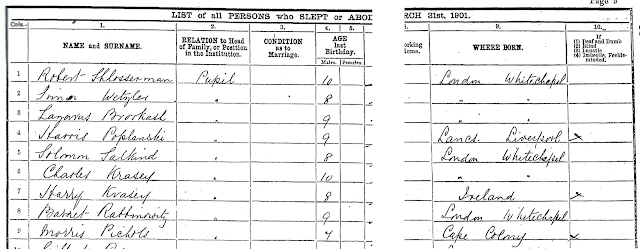 Page 9
LIST of all PERSONS who SLEPT or ABOD
RCH 31st, 1901.
Cols.— 1. 2. 3. 4. 5. 10.
NAME and SURNAME. RELATION to Head of Family, or Position in the Institution. CONDITION as to Marriage. AGE last Birthday. Males. Females. WHERE BORN. If (1) Deaf and Dumb (2) Blind (3) Lunatic (4) Imbecile, Feeble-minded.
1 Robert Shlosserman Pupil 10 London Whitechapel
2 Simon Wetzler " 8 " "
3 Lazarus Brookash " 9 " "
4 Harris Poplanski " 9 Lancs. Liverpool x
5 Solomon Salkind " 8 London Whitechapel
6 Charles Krasey " 10 " "
7 Harry Krasey " 8 Ireland x
8 Barnet Rabbinowitz " 9 London Whitechapel
9 Morris Pichols " 7 Cape Colony x